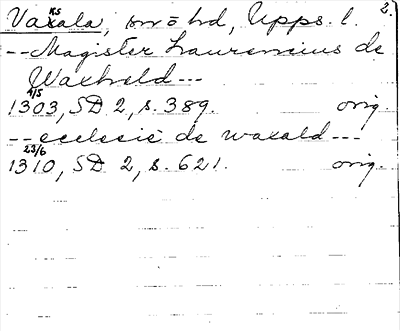 Vaksala, sn o hd, Upps. l. 2.
--Magister Laurencius de
Waxheld---
1303 4/5, SD 2, s. 389. orig.
--ecclesie de waxald---
1310 23/6, SD 2, s. 621. orig.